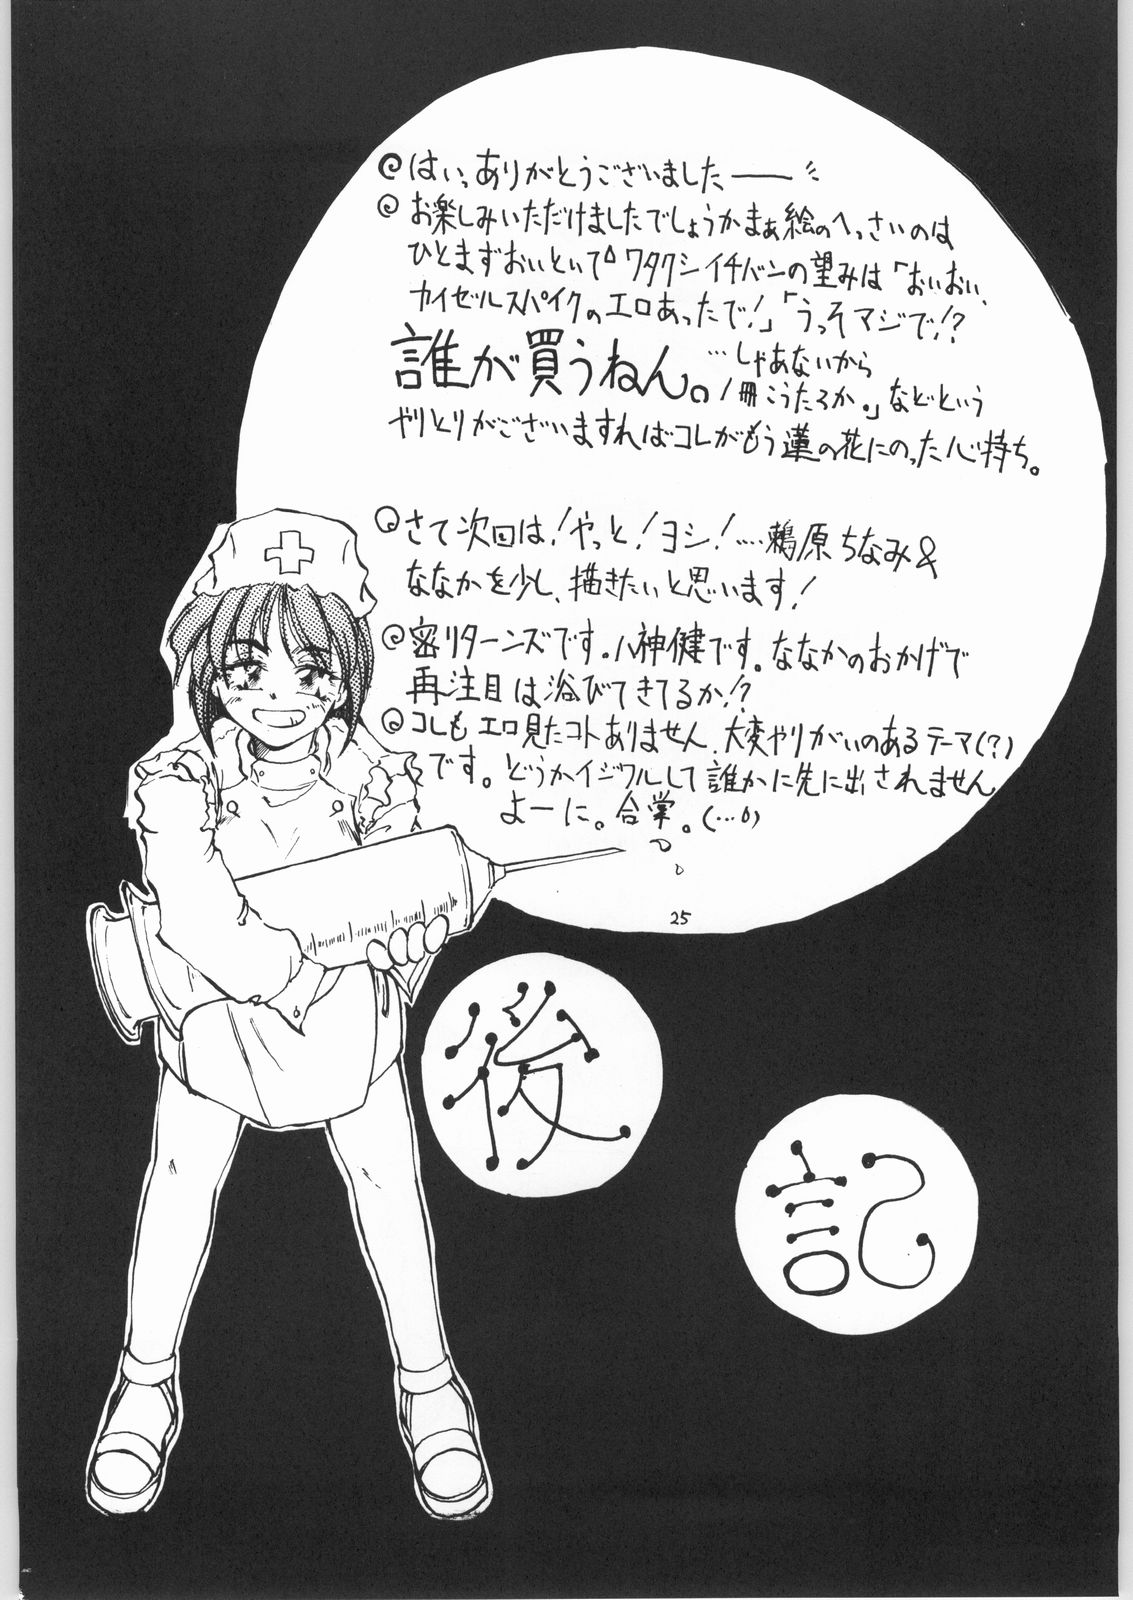 はいっありがとうございましたーー
お楽しみいただけましたでしょうかまぁ絵のへっさいのは
ひとまずおいといて ワタクシイチバンの望みは「おいおい、
カイゼルスパイクのエロあったで!」「うっそマジで!?
誰が買うねん。
…じゃあないから
1冊こうたろか。」などという
やりとりがございますればコレがもう蓮の花にのった心持ち。
さて次回は!やっと!ヨシ!……鵜原ちなみ&
ななかを少し、描きたいと思います!
密リターンズです。八神健です。ななかのおかげで
再注目は浴びてきてるか!?
コレもエロ見たコトありません、大変やりがいのあるテーマ(?)
です。どうかイジワルして誰かに先に出されません
よーに。合掌。(…0)
25
後
記